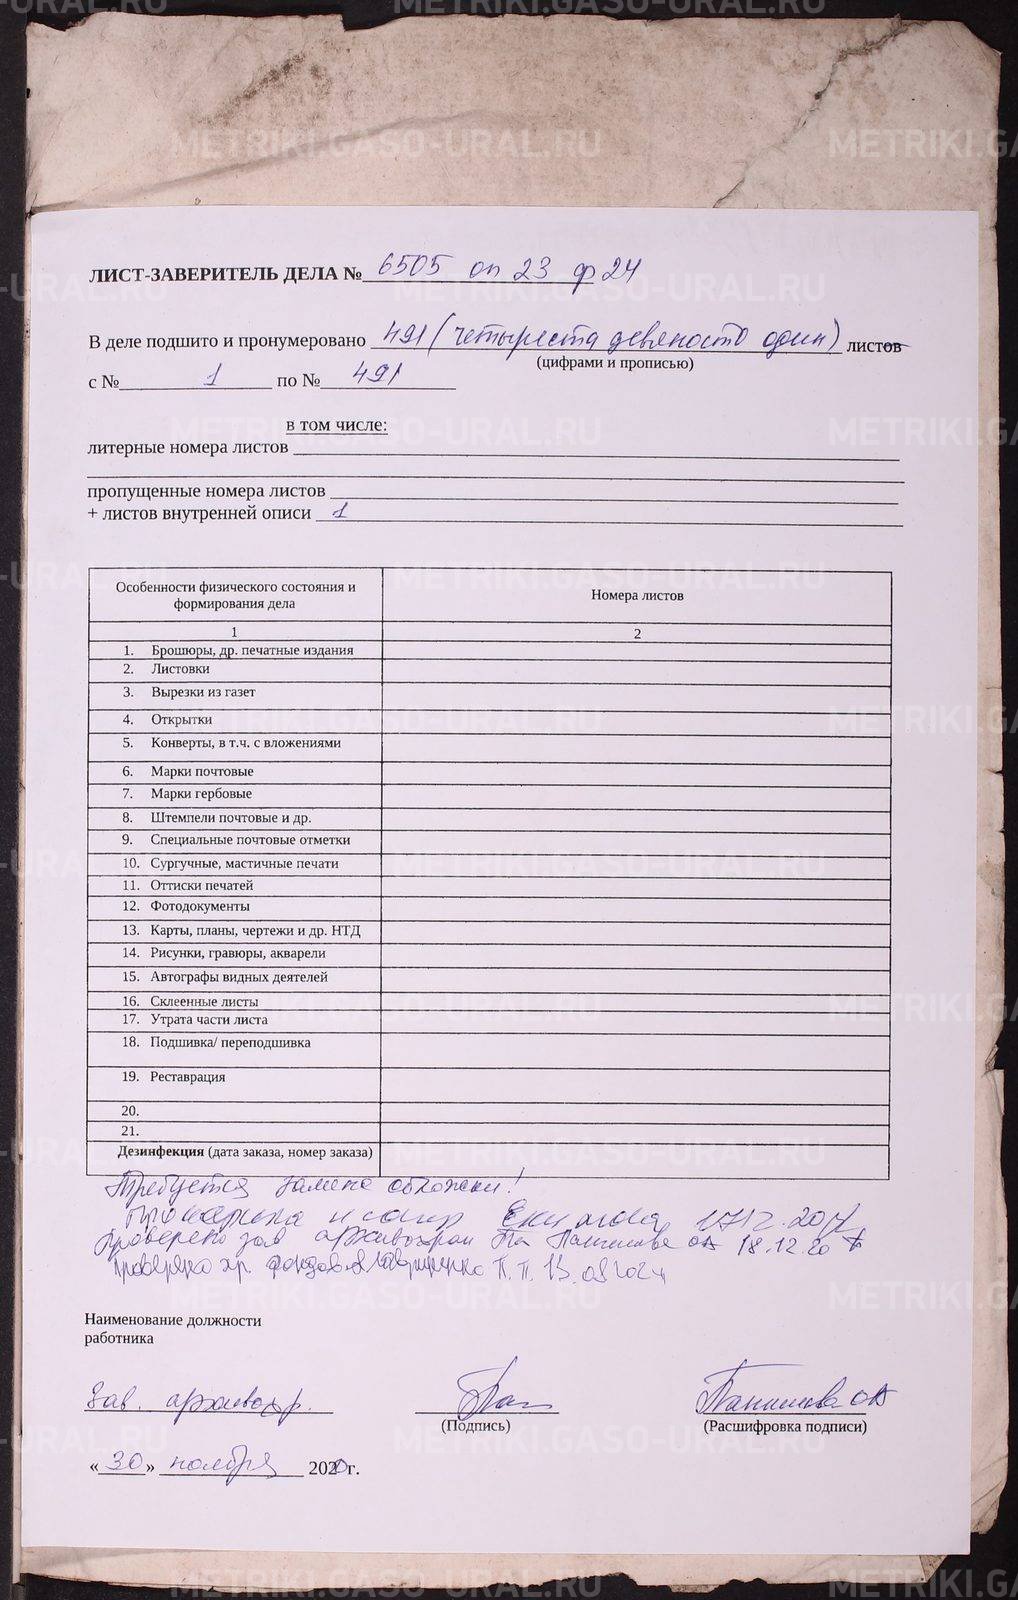 ЛИСТ-ЗАВЕРИТЕЛЬ ДЕЛА № 6505 оп 23 ф 24
В деле подшито и пронумеровано 491 (четыреста девяносто один) листов
(цифрами и прописью)
с № 1 по № 491
в том числе:
литерные номера листов
пропущенные номера листов
+ листов внутренней описи 1
Особенности физического состояния и формирования дела Номера листов
1 2
1. Брошюры, др. печатные издания
2. Листовки
3. Вырезки из газет
4. Открытки
5. Конверты, в т.ч. с вложениями
6. Марки почтовые
7. Марки гербовые
8. Штемпели почтовые и др.
9. Специальные почтовые отметки
10. Сургучные, мастичные печати
11. Оттиски печатей
12. Фотодокументы
13. Карты, планы, чертежи и др. НТД
14. Рисунки, гравюры, акварели
15. Автографы видных деятелей
16. Склеенные листы
17. Утрата части листа
18. Подшивка/ переподшивка
19. Реставрация
20.
21.
Дезинфекция (дата заказа, номер заказа)
Требуется замена обложки!
Проверено зав архивохран 18.12.20
хр. фондов П.П. 13.
Наименование должности
работника
Зав. архивохр.
(Подпись) (Расшифровка подписи)
«30» ноября 2020г.
METRIKI.GASO-URAL.RU